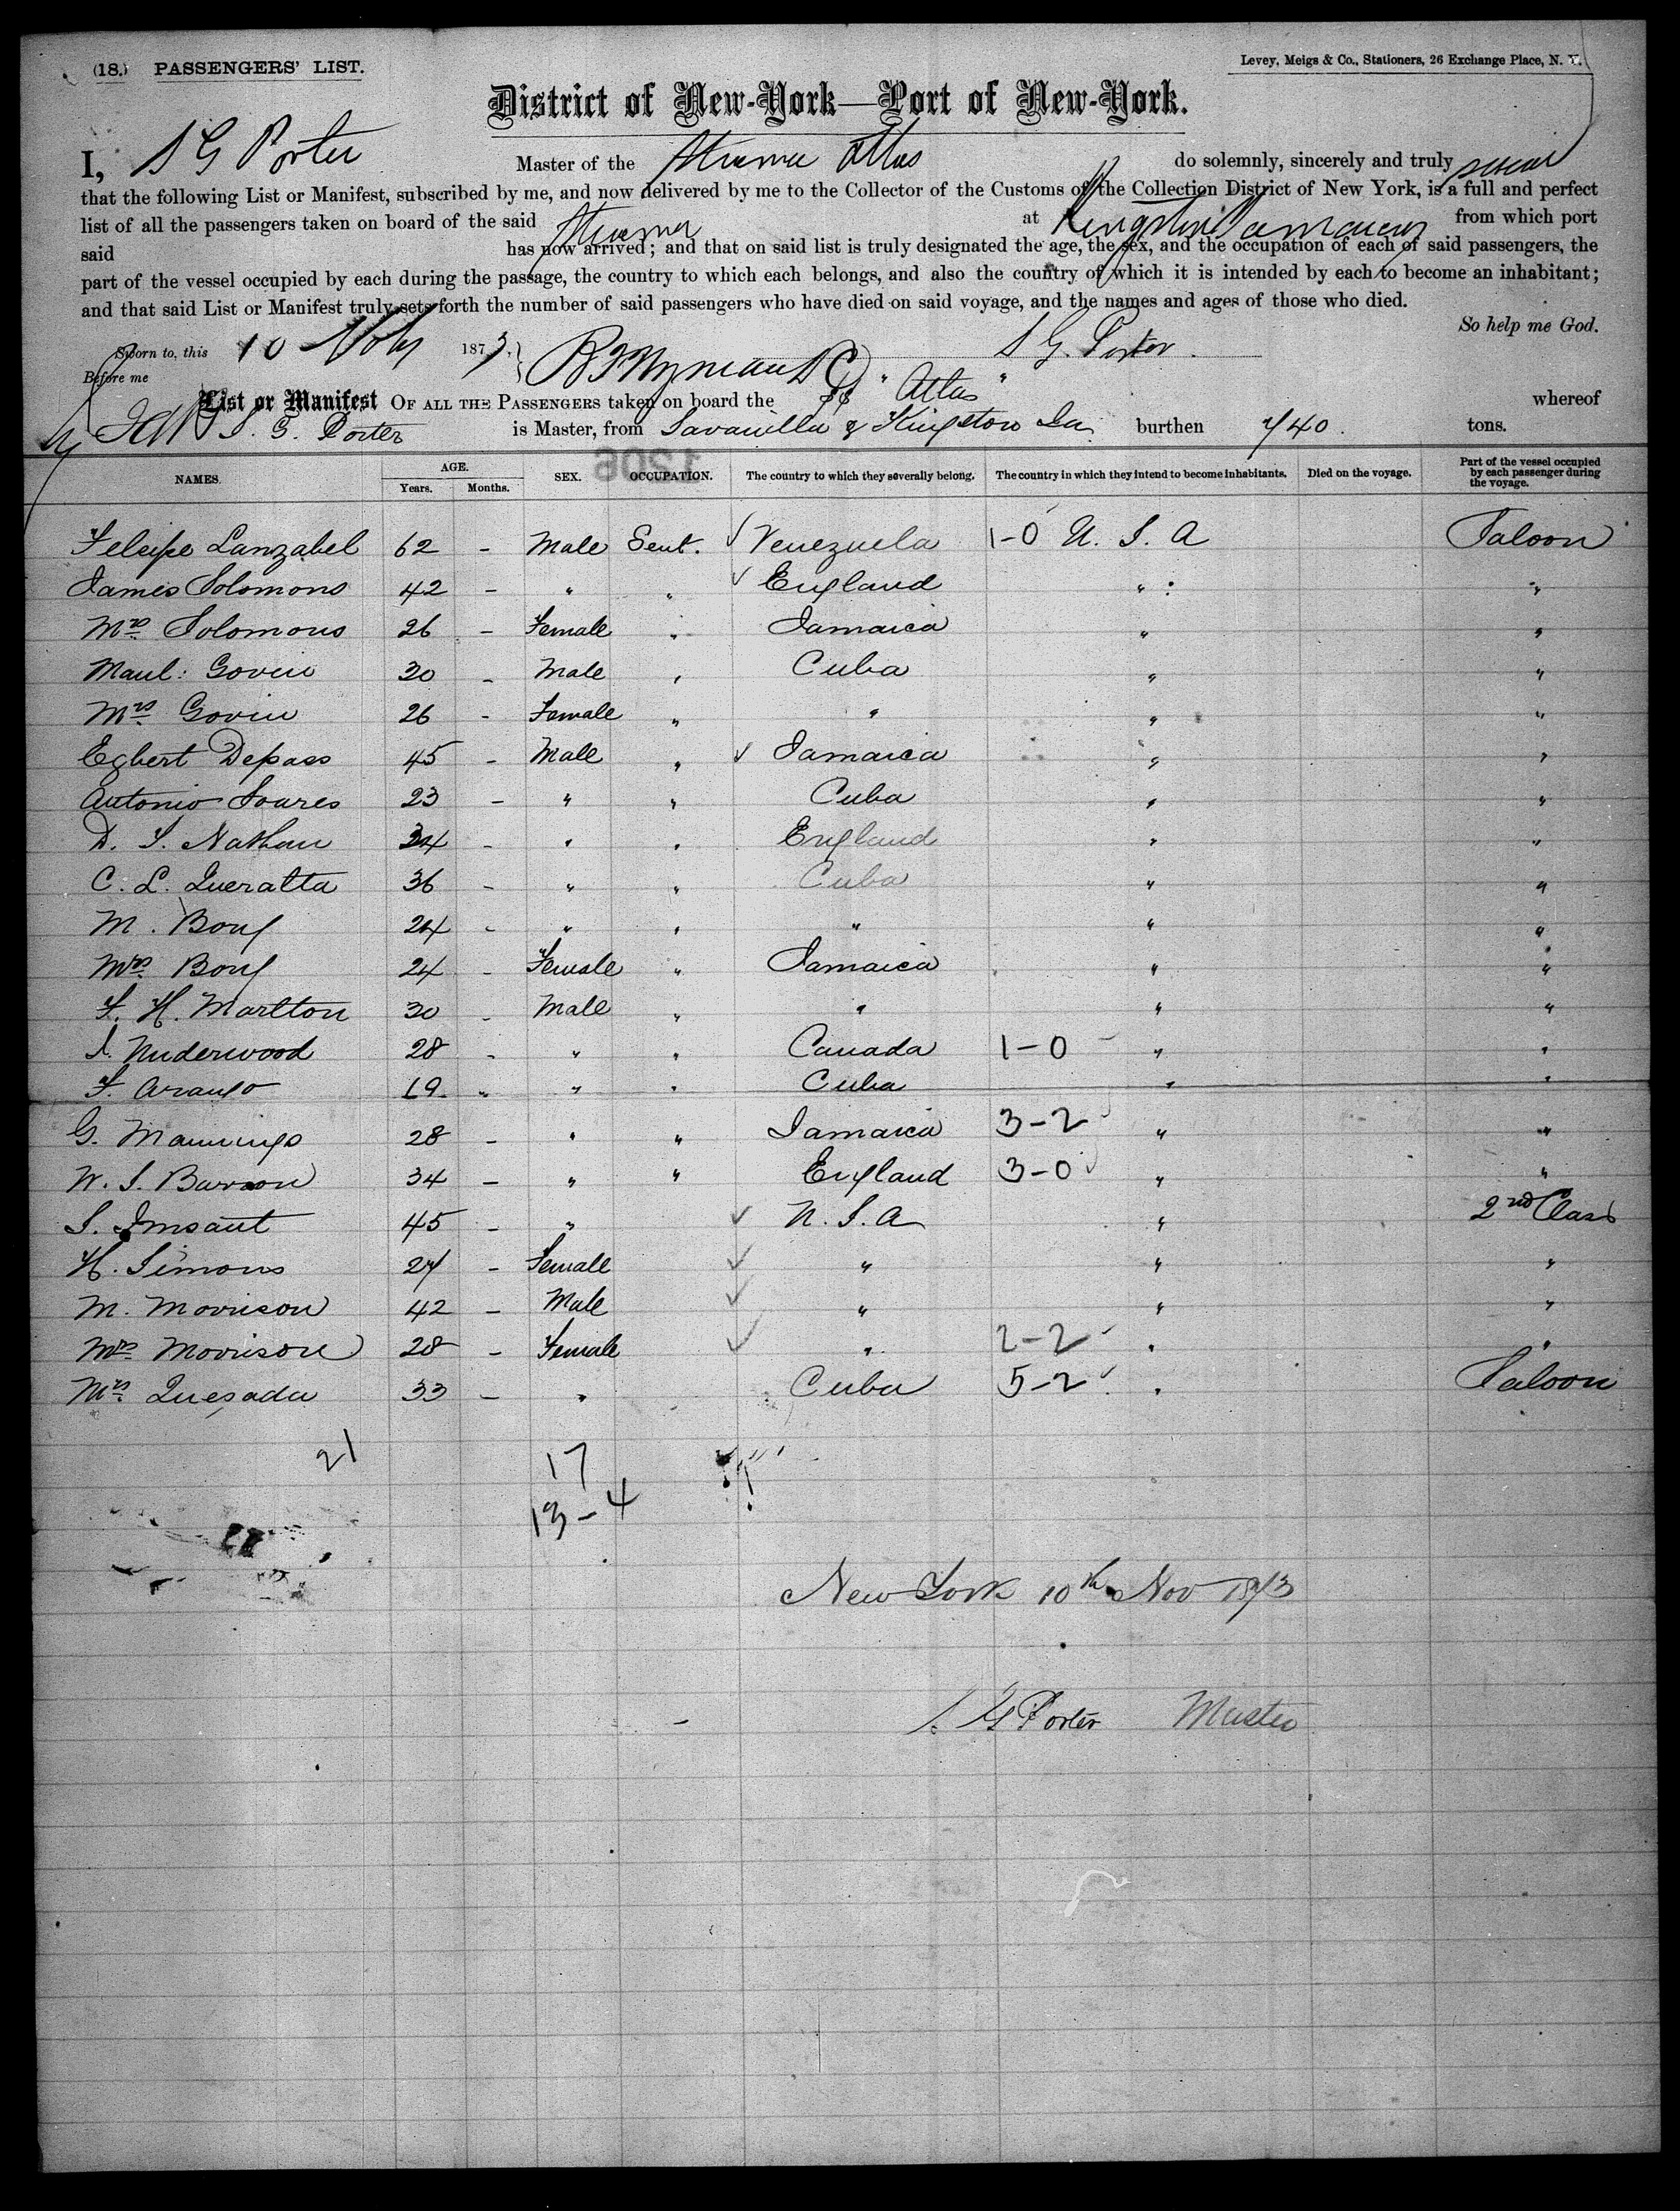 (18.) PASSENGERS' LIST.
Levey, Meigs & Co., Stationers, 26 Exchange Place, N. Y.
District of New-York—Port of New-York.
I, S G Porter Master of the Steamer Atlas do solemnly, sincerely and truly swear
that the following List or Manifest, subscribed by me, and now delivered by me to the Collector of the Customs of the Collection District of New York, is a full and perfect
list of all the passengers taken on board of the said Steamer at Kingston Jamaica from which port
said has now arrived; and that on said list is truly designated the age, the sex, and the occupation of each of said passengers, the
part of the vessel occupied by each during the passage, the country to which each belongs, and also the country of which it is intended by each to become an inhabitant;
and that said List or Manifest truly sets forth the number of said passengers who have died on said voyage, and the names and ages of those who died.
So help me God.
Sworn to, this 10 Nov 1873. S G. Porter
Before me
List or Manifest OF ALL THE PASSENGERS taken on board the SS "Atlas" whereof
S. G. Porter is Master, from Savanilla & Kingston Ja. burthen 740. tons.
1206
NAMES. AGE. Years. Months. SEX. OCCUPATION. The country to which they severally belong. The country in which they intend to become inhabitants. Died on the voyage. Part of the vessel occupied by each passenger during the voyage.
Feleipe Lanzabel 62 - Male Gent. Venezuela 1-0 U. S. A Saloon
James Solomons 42 - " " England " "
Mrs Solomons 26 - Female " Jamaica " "
Manl: Govin 30 - Male " Cuba " "
Mrs Govin 26 - Female " " " "
Egbert Depass 45 - Male " Jamaica " "
Antonio Soares 23 - " " Cuba " "
D. S. Nathan 34 - " " England " "
C. L. Queralta 36 - " " Cuba " "
M. 24 - " " " " "
Mrs 24 - Female " Jamaica " "
F. H. Marlton 30 - Male " " " "
Underwood 28 - " " Canada 1-0 " "
F. Araujo 19 - " " Cuba " "
G. Mannings 28 - " " Jamaica 3-2 " "
W. S. Barron 34 - " " England 3-0 " "
S. Imsaut 45 - " U. S. A " 2nd Class
H. Simons 24 - Female " " "
M. Morrison 42 - Male " " "
Mrs Morrison 28 - Female " 2-2 " "
Mrs Quesada 33 - " Cuba 5-2 " Saloon
21 17
13-4
New York 10th Nov 1873
S G Porter Master